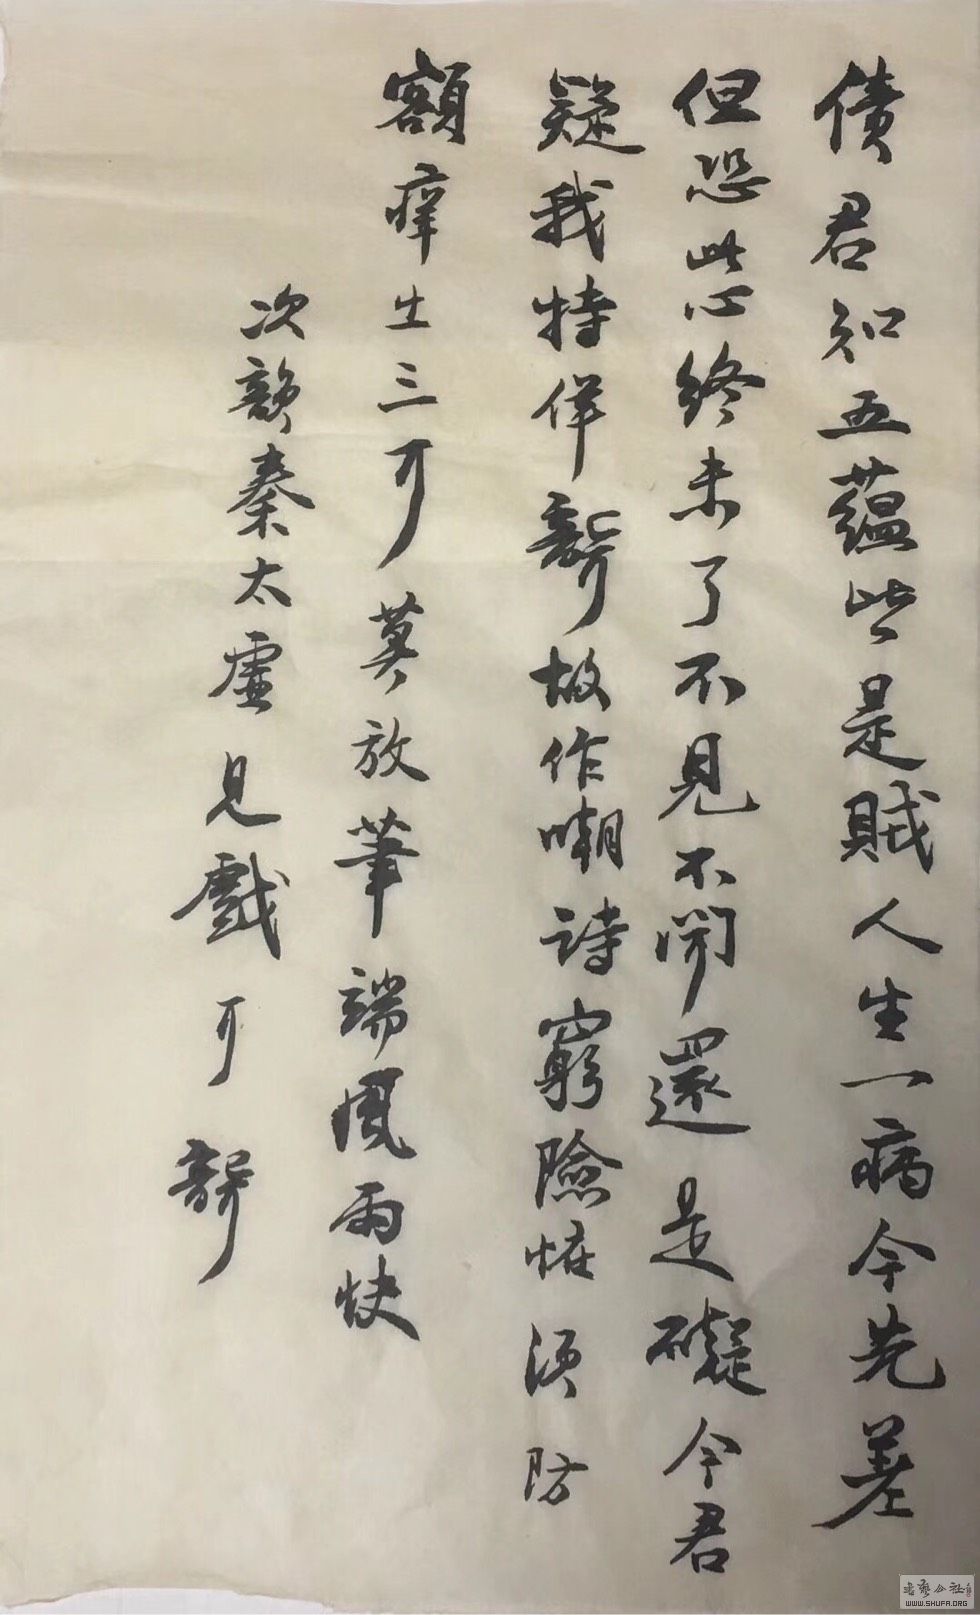 債君知五蘊皆是賊人生一病今先差
但恐此心終未了不見不聞還是礙今君
疑我特佯聾故作嘲詩窮險怪須防
額癢出三耳莫放筆端風雨快
次韻秦太虛見戲耳聾
書藝公社
WWW.SHUFA.ORG